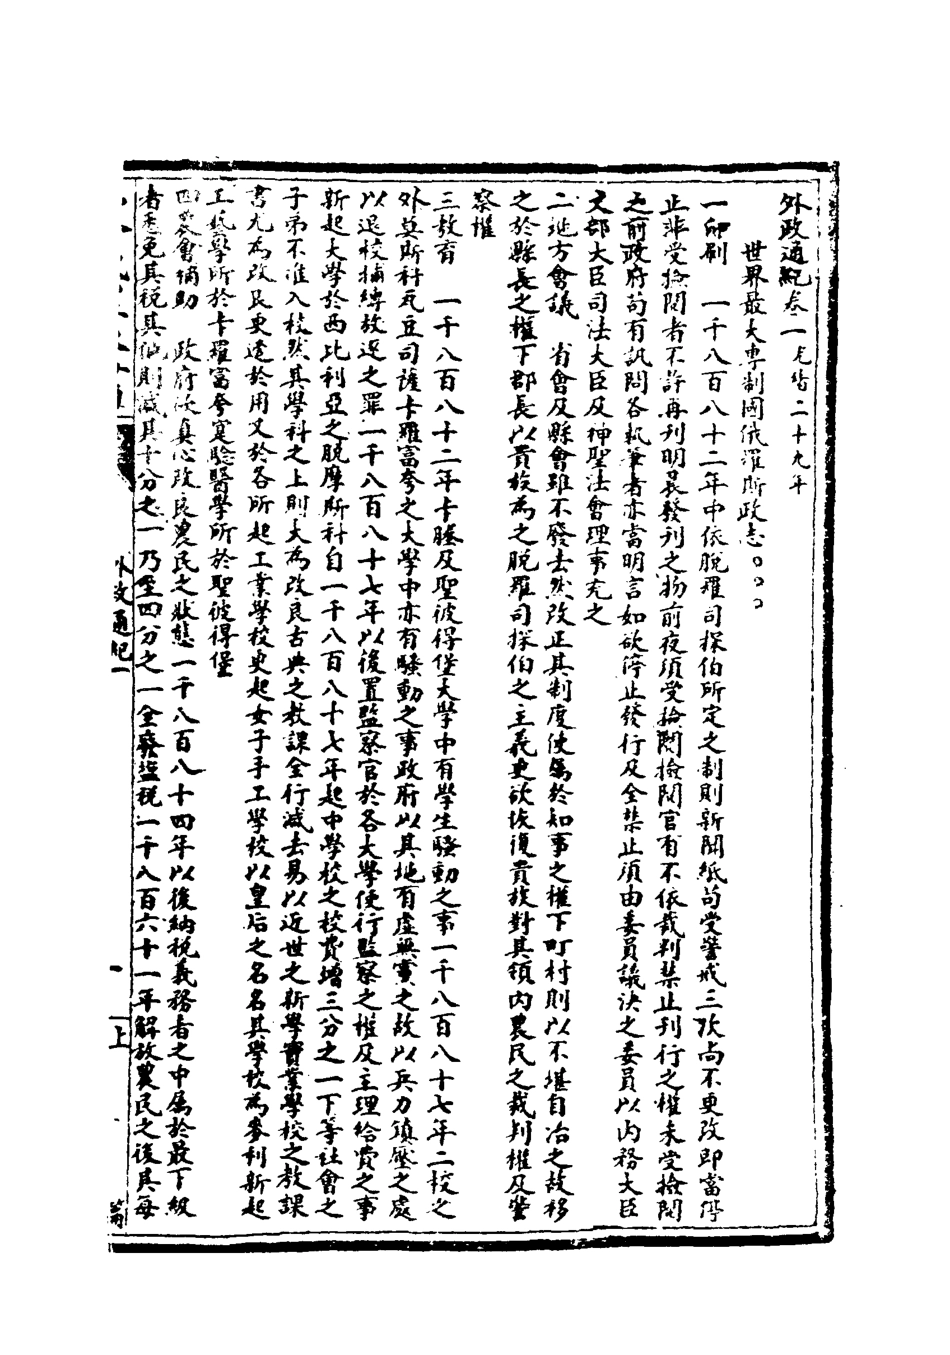 外政通紀卷一 光緒二十九年
世界最大專制國俄羅斯政志○○○
一印刷　一千八百八十二年中依脫羅司探伯所定之制則新聞紙苟受警戒三次尚不更改即當停
止非受檢閱者不許再刊明晨發刊之物前夜須受檢閱檢閱官有不依裁判禁止刊行之權未受檢閱
之前政府苟有訊問各執筆者亦當明言如欲停止發行及全禁止須由委員議決之委員以內務大臣
文部大臣司法大臣及神聖法會理事充之
二地方會議　省會及縣會雖不廢去然改正其制度使屬於知事之權下町村則以不堪自治之故移
之於縣長之權下郡長以貴族為之脫羅司探伯之主義更欲恢復貴族對其領內農民之裁判權及警
察權
三教育　一千八百八十二年卡勝及聖彼得堡大學中有學生騷動之事一千八百八十七年二校之
外莫斯科疴豆司薩卡羅富夸之大學中亦有騷動之事政府以其地有虛無黨之故以兵力鎮壓之處
以退校捕縛放逐之罪一千八百八十七年以後置監察官於各大學使行監察之權及主理給費之事
新起大學於西比利亞之脫摩斯科自一千八百八十七年起中學校之校費增三分之一下等社會之
子弟不准入校然其學科之上則大為改良古典之教課全行減去易以近世之新學實業學校之教課
書尤為改良更遠於用又於各所起工業學校更起女子手工學校以皇后之名名其學校為麥利新起
工藝學所於卡羅富夸寔驗醫學所於聖彼得堡
四農會補助　政府欲真心改良農民之狀態一千八百八十四年以後納稅義務者之中屬於最下級
者悉免其稅其他則減其十分之一乃至四分之一全廢鹽稅一千八百六十一年解放農民之後其每
外政通紀一
一
上